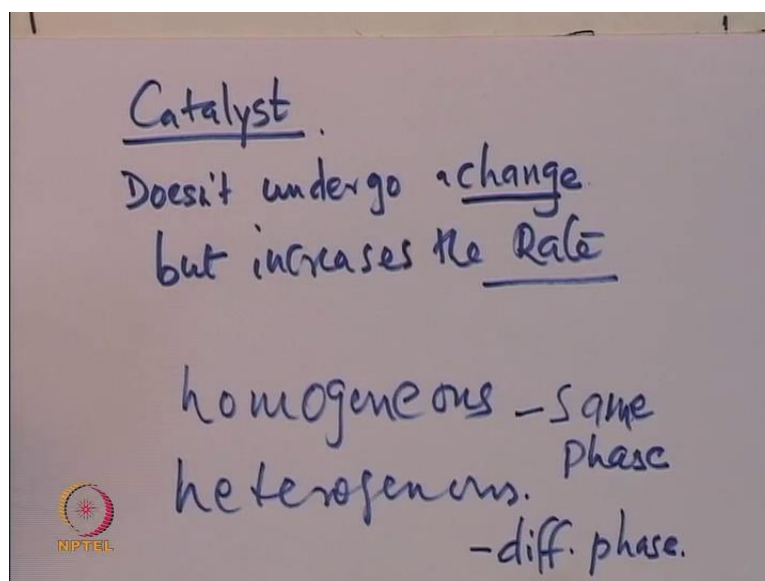 Catalyst.
Doesn't undergo a change.
but increases the Rate
homogeneous - same
phase
heterogenous.
- diff. phase.
NPTEL